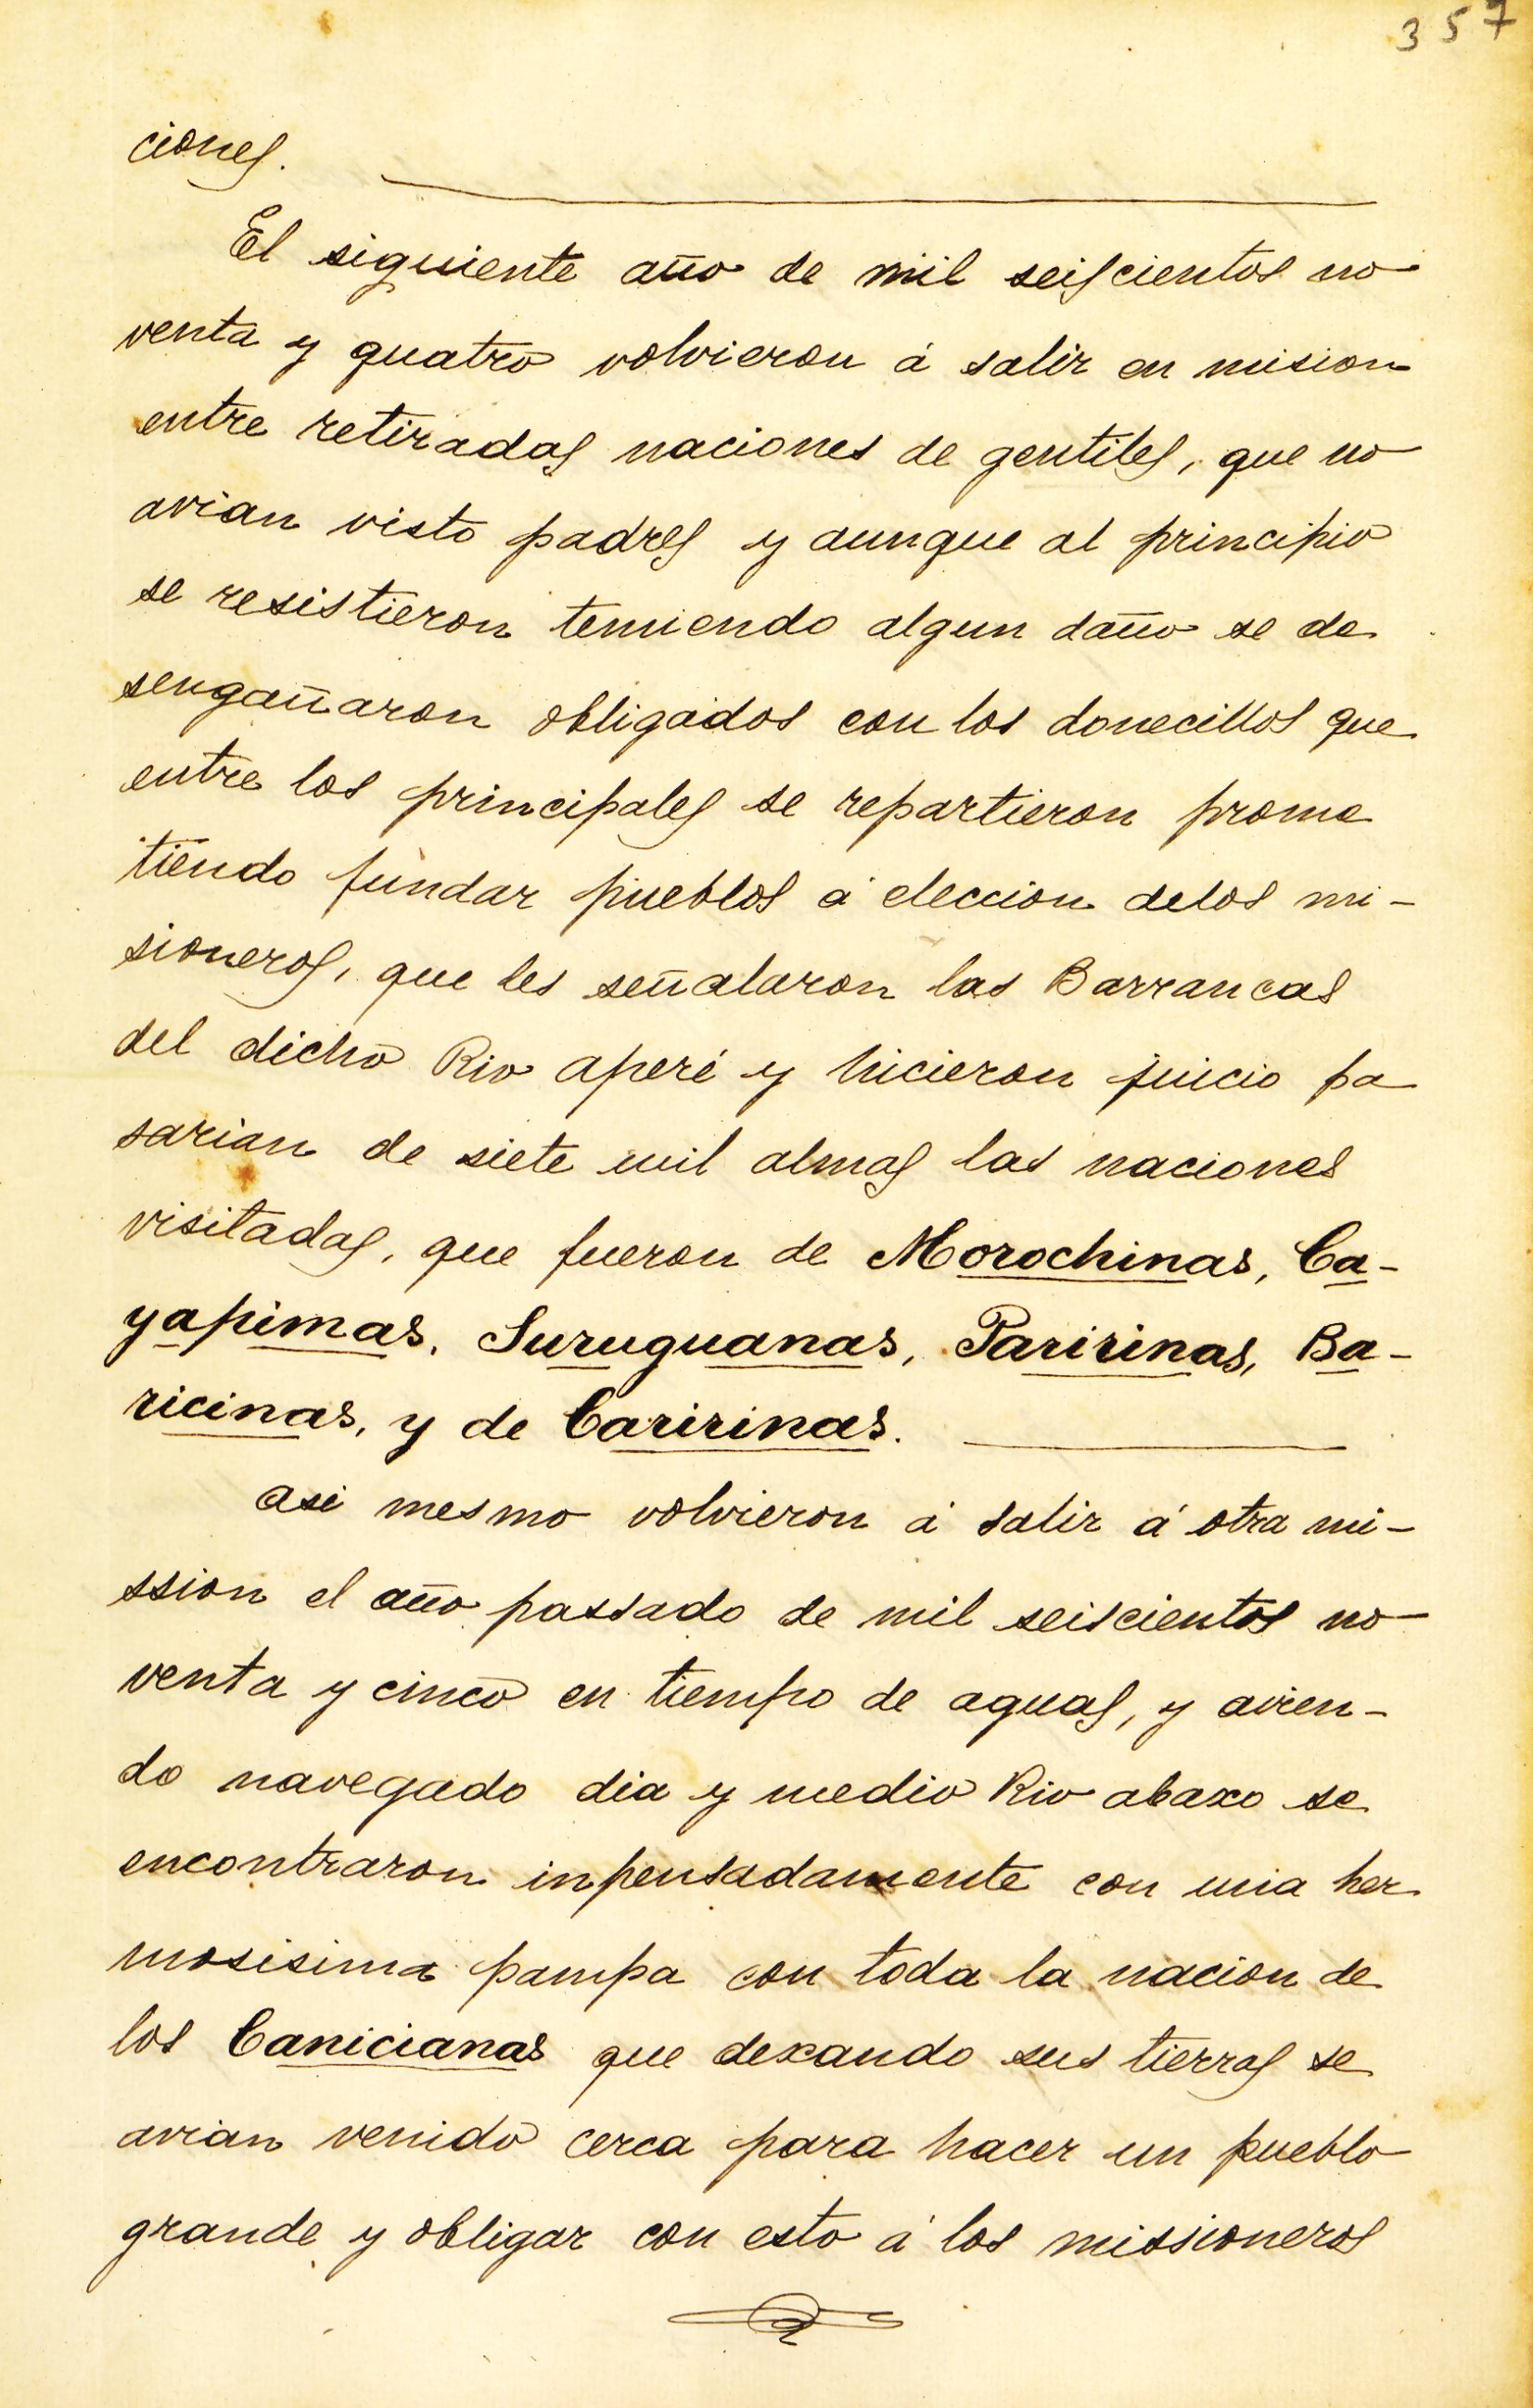 357
ciones.
El siguiente año de mil seiscientos no
venta y quatro volvieron á salir en mision
entre retiradas naciones de gentiles, que no
avian visto padres y aunque al principio
se resistieron temiendo algun daño se de
sengañaron obligados con los donecillos que
entre los principales se repartieron prome
tiendo fundar pueblos á eleccion delos mi-
sioneros, que les señalaron las Barrancas
del dicho Rio aperé y hicieron juicio pa
sarian de siete mil almas las naciones
visitadas, que fueron de Morochinas, Ca-
yapimas, Suruguanas, Paririnas, Ba-
ricinas, y de Caririnas.
asi mesmo volvieron á salir á otra mi-
ssion el año passado de mil seiscientos no
venta y cinco en tiempo de aguas, y avien-
do navegado dia y medio Rio abaxo se
encontraron inpensadamente con una her
mosisima pampa con toda la nacion de
los Canicianas que dexando sus tierras se
avian venido cerca para hacer un pueblo
grande y obligar con esto á los missioneros